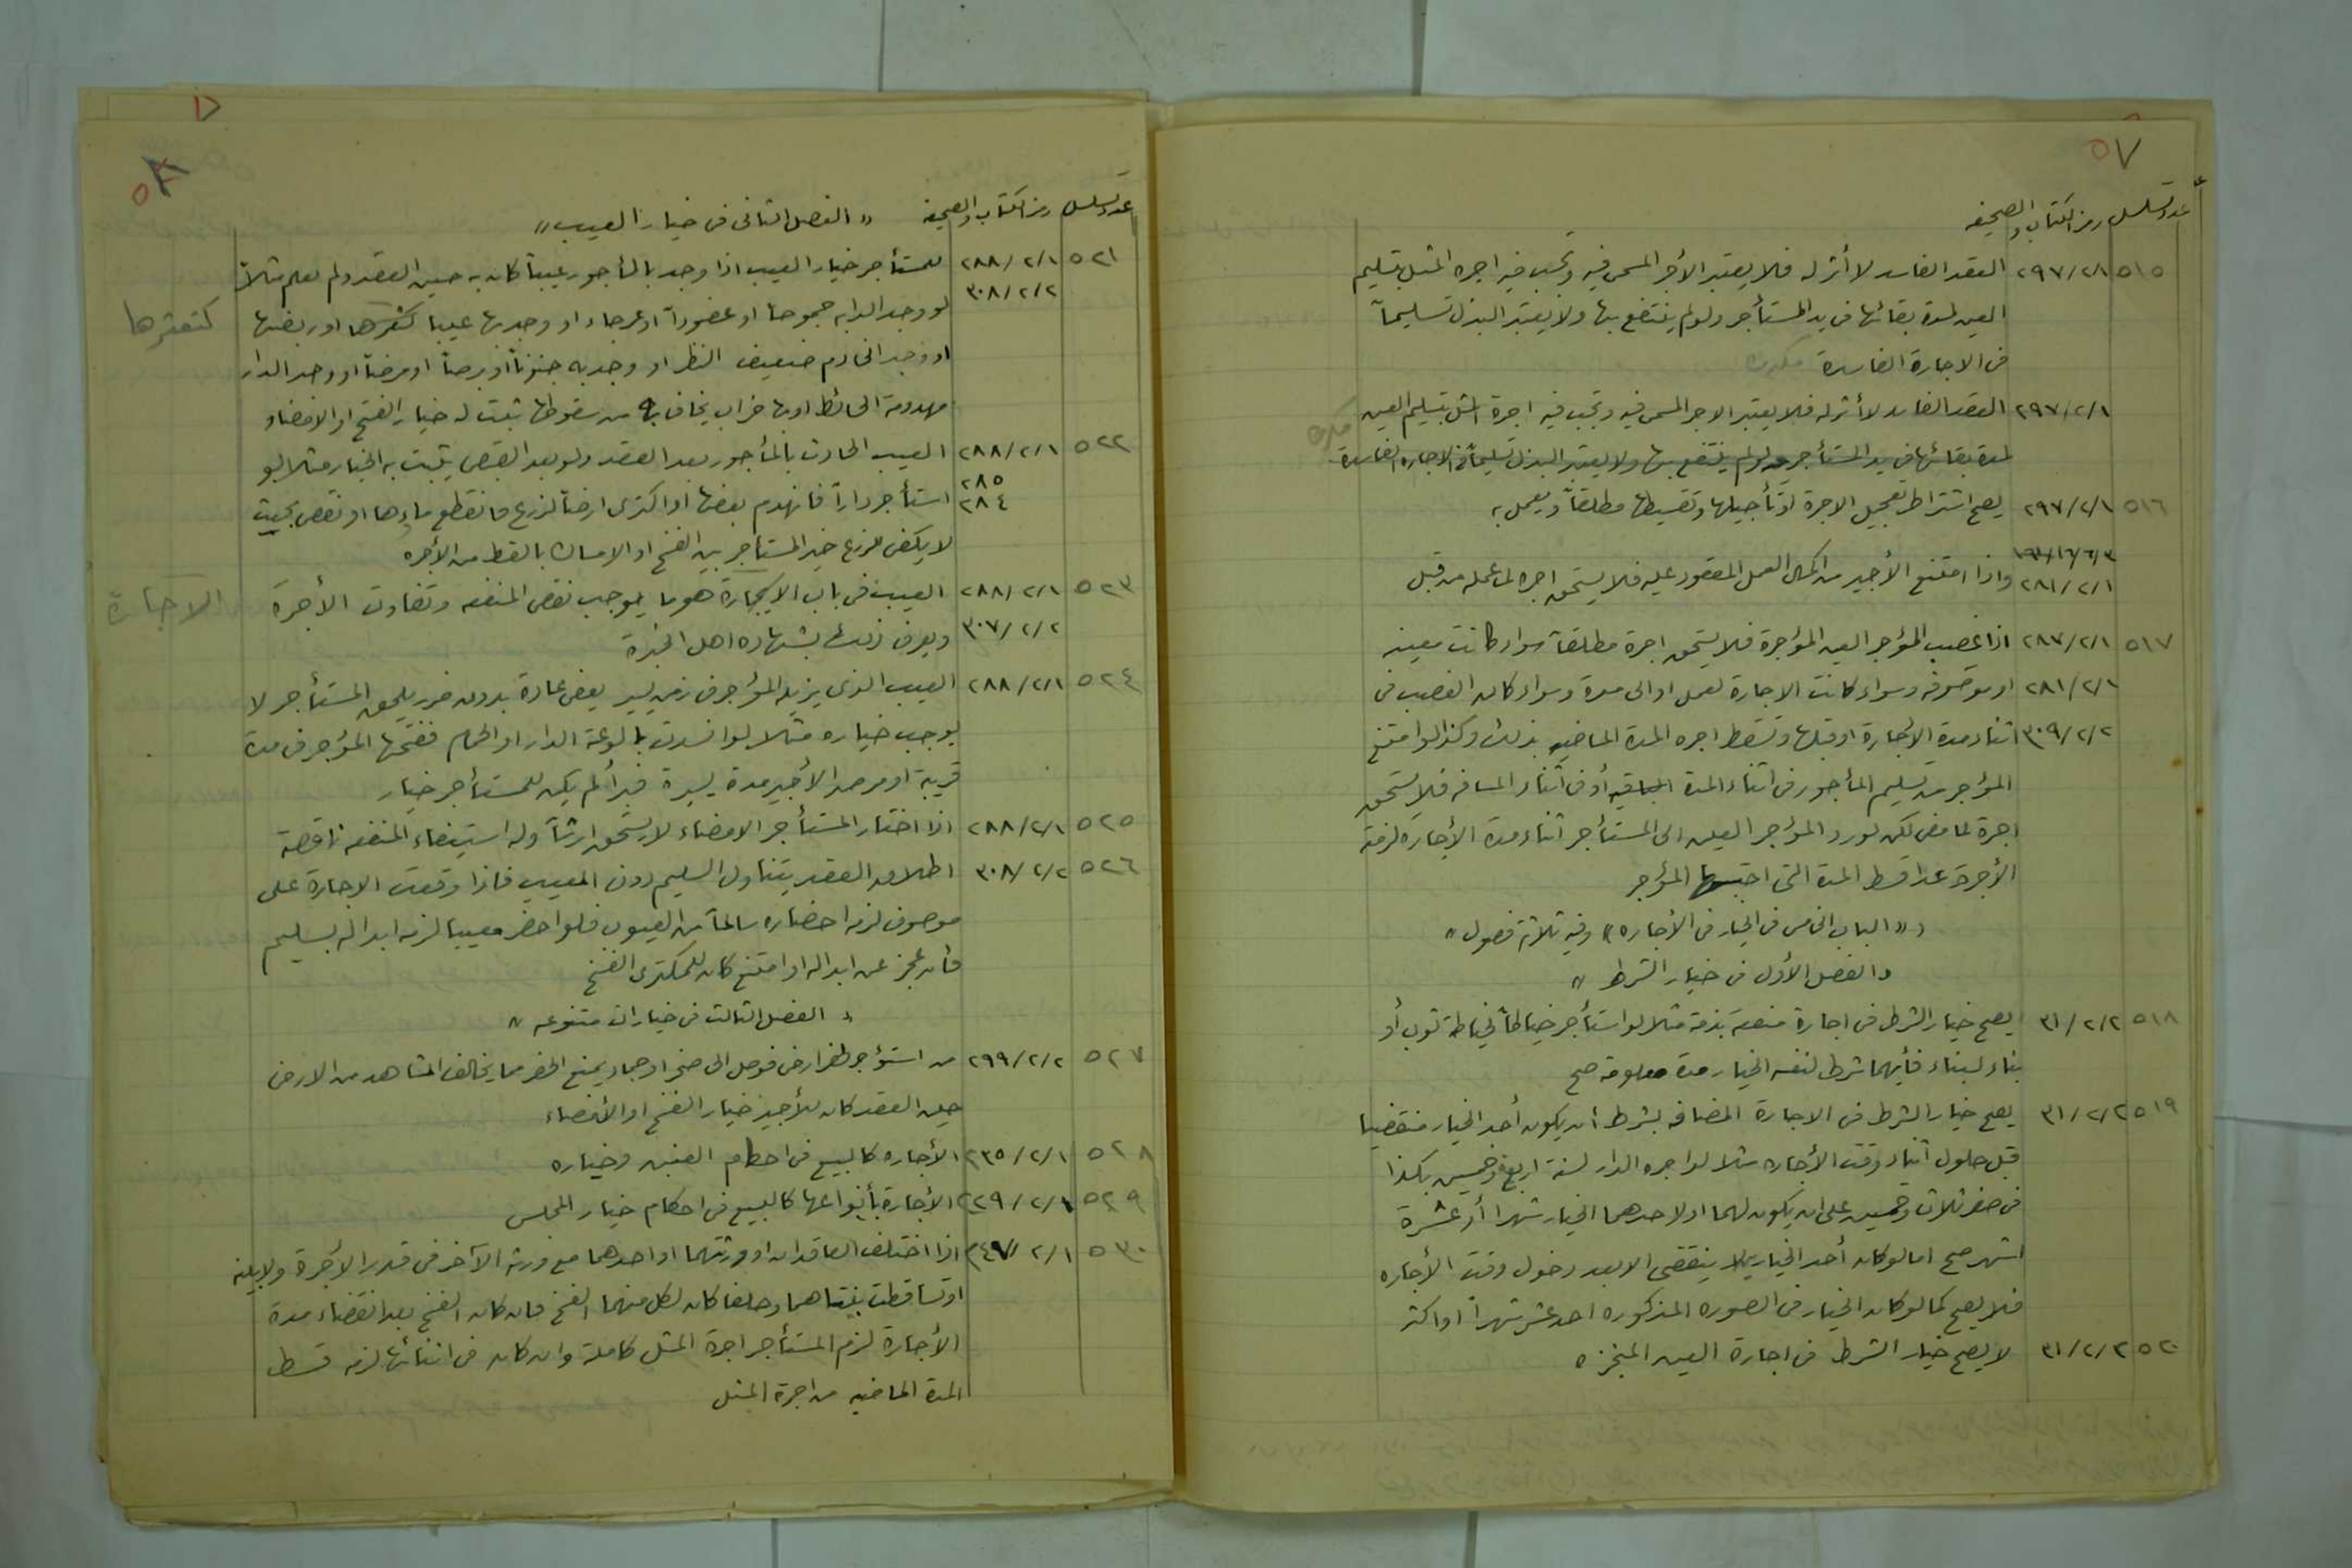 ٥٧
عدد تسلسل رمز الكتاب والصحيفه
٥١٥ ٢٩٧/٢/١ العقد الفاسد لا أثر له فلا يعتبر الأجر المسمى فيه وتجب فيه اجرة المثل بتسليم
العين لمدة بقائها في يد المستأجر ولو لم ينتفع بها ولا يعتبر البذل تسليماً
في الاجارة الفاسدة مكررة
٢٩٧/٢/١ العقد الفاسد لا أثر له فلا يعتبر الاجر المسمى فيه وتجب فيه اجرة المثل بتسليم العين مكرره
لمدة بقائها في يد المستأجر ولو لم ينتفع بها ولا يعتبر البذل تسليماً في الاجاره الفاسدة
٥١٦ ٢٩٧/٢/١ يصح اشتراط تعجيل الاجرة او تأجيلها وتقسيطها مطلقاً ويعمل به
٢٨١/٢/١ واذا امتنع الأجير من اكمال العمل المعقود عليه فلا يستحق اجره لما عمله من قبل
٥١٧ ٢٨٧/٢/١ اذا غصب المؤجر العين المؤجرة فلا يستحق اجرة مطلقاً سواء كانت معينه
٢٨١/٢/١ او موصوفه وسواء كانت الاجارة لعمل او الى مدة وسواء كان الغصب في
٣٠٩/٢/٢ اثناء مدة الإجارة او قبلها وتسقط اجره المدة الماضيه بذلك وكذا لو امتنع
المؤجر من تسليم المأجور في اثناء المدة الباقيه أو في اثناء المسافه فلا يستحق
اجرة لما مضى لكن لو رد المؤجر العين الى المستأجر اثناء مدة الأجارة لزمته
الأجرة عدا قسط المدة التي احتبسها المؤجر
« الباب الخامس في الخيار في الأجاره » وفيه ثلاثة فصول »
« الفصل الأول في خيار الشرط »
٥١٨ ٣١/٢/٢ يصح خيار الشرط في اجارة منفعة بذمة مثلا لو استأجر خياطاً لخياطة ثوب أو
بناء لبناء فأيهما شرط لنفسه الخيار مدة معلومة صح
٥١٩ ٣١/٢/٢ يصح خيار الشرط في الاجارة المضافه بشرط ان يكون أحد الخيار منقضيا
قبل حلول اثناء وقت الأجاره مثلا لو اجره الدار لسنة اربعة وخمسين بكذا
في صفر ثلاث وخمسين على ان يكون لهما او لاحدهما الخيار شهرا أو عشرة
اشهر صح اما لو كان أحد الخيارين لا ينقضي الا بعد دخول وقت الأجاره
فلا يصح كما لو كان الخيار في الصوره المذكوره احد عشر شهراً او اكثر
٥٢٠ ٣١/٢/٢ لا يصح خيار الشرط في اجارة العين المنجزه
٥٨
عدد تسلسل رمز الكتاب والصحيفه « الفصل الثاني في خيار العيب »
٥٢١ ٢٨٨/٢/١ للمستأجر خيار العيب اذا وجد بالمأجور عيباً كان به حين العقد ولم يعلم مثلاً
٣٠٨/٢/٢ لو وجد الدابه جموحا او عضوداً او عرجاء او وجد بها عيبا كتعثرها او ربضها كتعثرها
او وجد الخادم ضعيف النظر او وجد به جنوناً او برصاً او مرضاً او وجد الدار
مهدومة الحائط او بها خراب يخاف به من سقوطها ثبت له خيار الفسخ او الامضاء
٥٢٢ ٢٨٨/٢/١ العيب الحادث بالمأجور بعد العقد ولو بعد القبض يثبت به الخيار مثلا لو
٢٨٥
٢٨٤ استأجر داراً فانهدم بعضها او اكترى ارضاً لزرع فانقطع ماؤها او نقص بحيث
لا يكفي للزرع خير المستأجر بين الفسخ او الامساك بالقسط من الأجره
٥٢٣ ٢٨٨/٢/١ العيب في باب الإيجارة هو ما يوجب نقص المنفعه وتفاوت الأجرة الاجارة
٣٠٧/٢/٢ ويعرف ذلك بشهاده اهل الخبرة
٥٢٤ ٢٨٨/٢/١ العيب الذي يزيله المؤجر في زمن يسير يعفى عادة بدون ضرر يلحق المستأجر لا
يوجب خياره مثلا لو انسدت بالوعة الدار او الحمام ففتحها المؤجر في مدة
قريبة او مرض الأجير مدة يسيرة فبرأ لم يكن للمستأجر خيار
٥٢٥ ٢٨٨/٢/١ اذا اختار المستأجر الامضاء لا يستحق ارشاً وله استيفاء المنفعه ناقصة
٥٢٦ ٣٠٨/٢/٢ اطلاق العقد يتناول السليم دون المعيب فاذا وقعت الاجارة على
موصوف لزم احضاره سالماً من العيوب فلو احضر معيبا لزمه ابداله بسليم
فأن عجز عن ابداله او امتنع كان للمكتري الفسخ
« الفصل الثالث في خيارات متنوعه »
٥٢٧ ٢٩٩/٢/٢ من استؤجر لحفر ارض فوصل الى صخر او جماد يمنع الحفر مما يخالف المشاهد من الارض
حين العقد كان للأجير خيار الفسخ او الأمضاء
٥٢٨ ٢٣٥/٢/١ الأجاره كالبيع في احكام الغبن وخياره
٥٢٩ ٢٢٩/٢/١ الأجارة بأنواعها كالبيع في احكام خيار المجلس
٥٣٠ ٢٤٧/٢/١ اذا اختلف العاقدان او ورثتهما او احدهما مع ورثة الآخر في قدر الأجرة ولا بينه
او تساقطت بينتاهما وحلفا كان لكل منهما الفسخ فان كان الفسخ بعد انقضاء مدة
الأجارة لزم المستأجر اجرة المثل كاملة وان كان في اثنائها لزمه قسط
المدة الماضيه من اجرة المثل